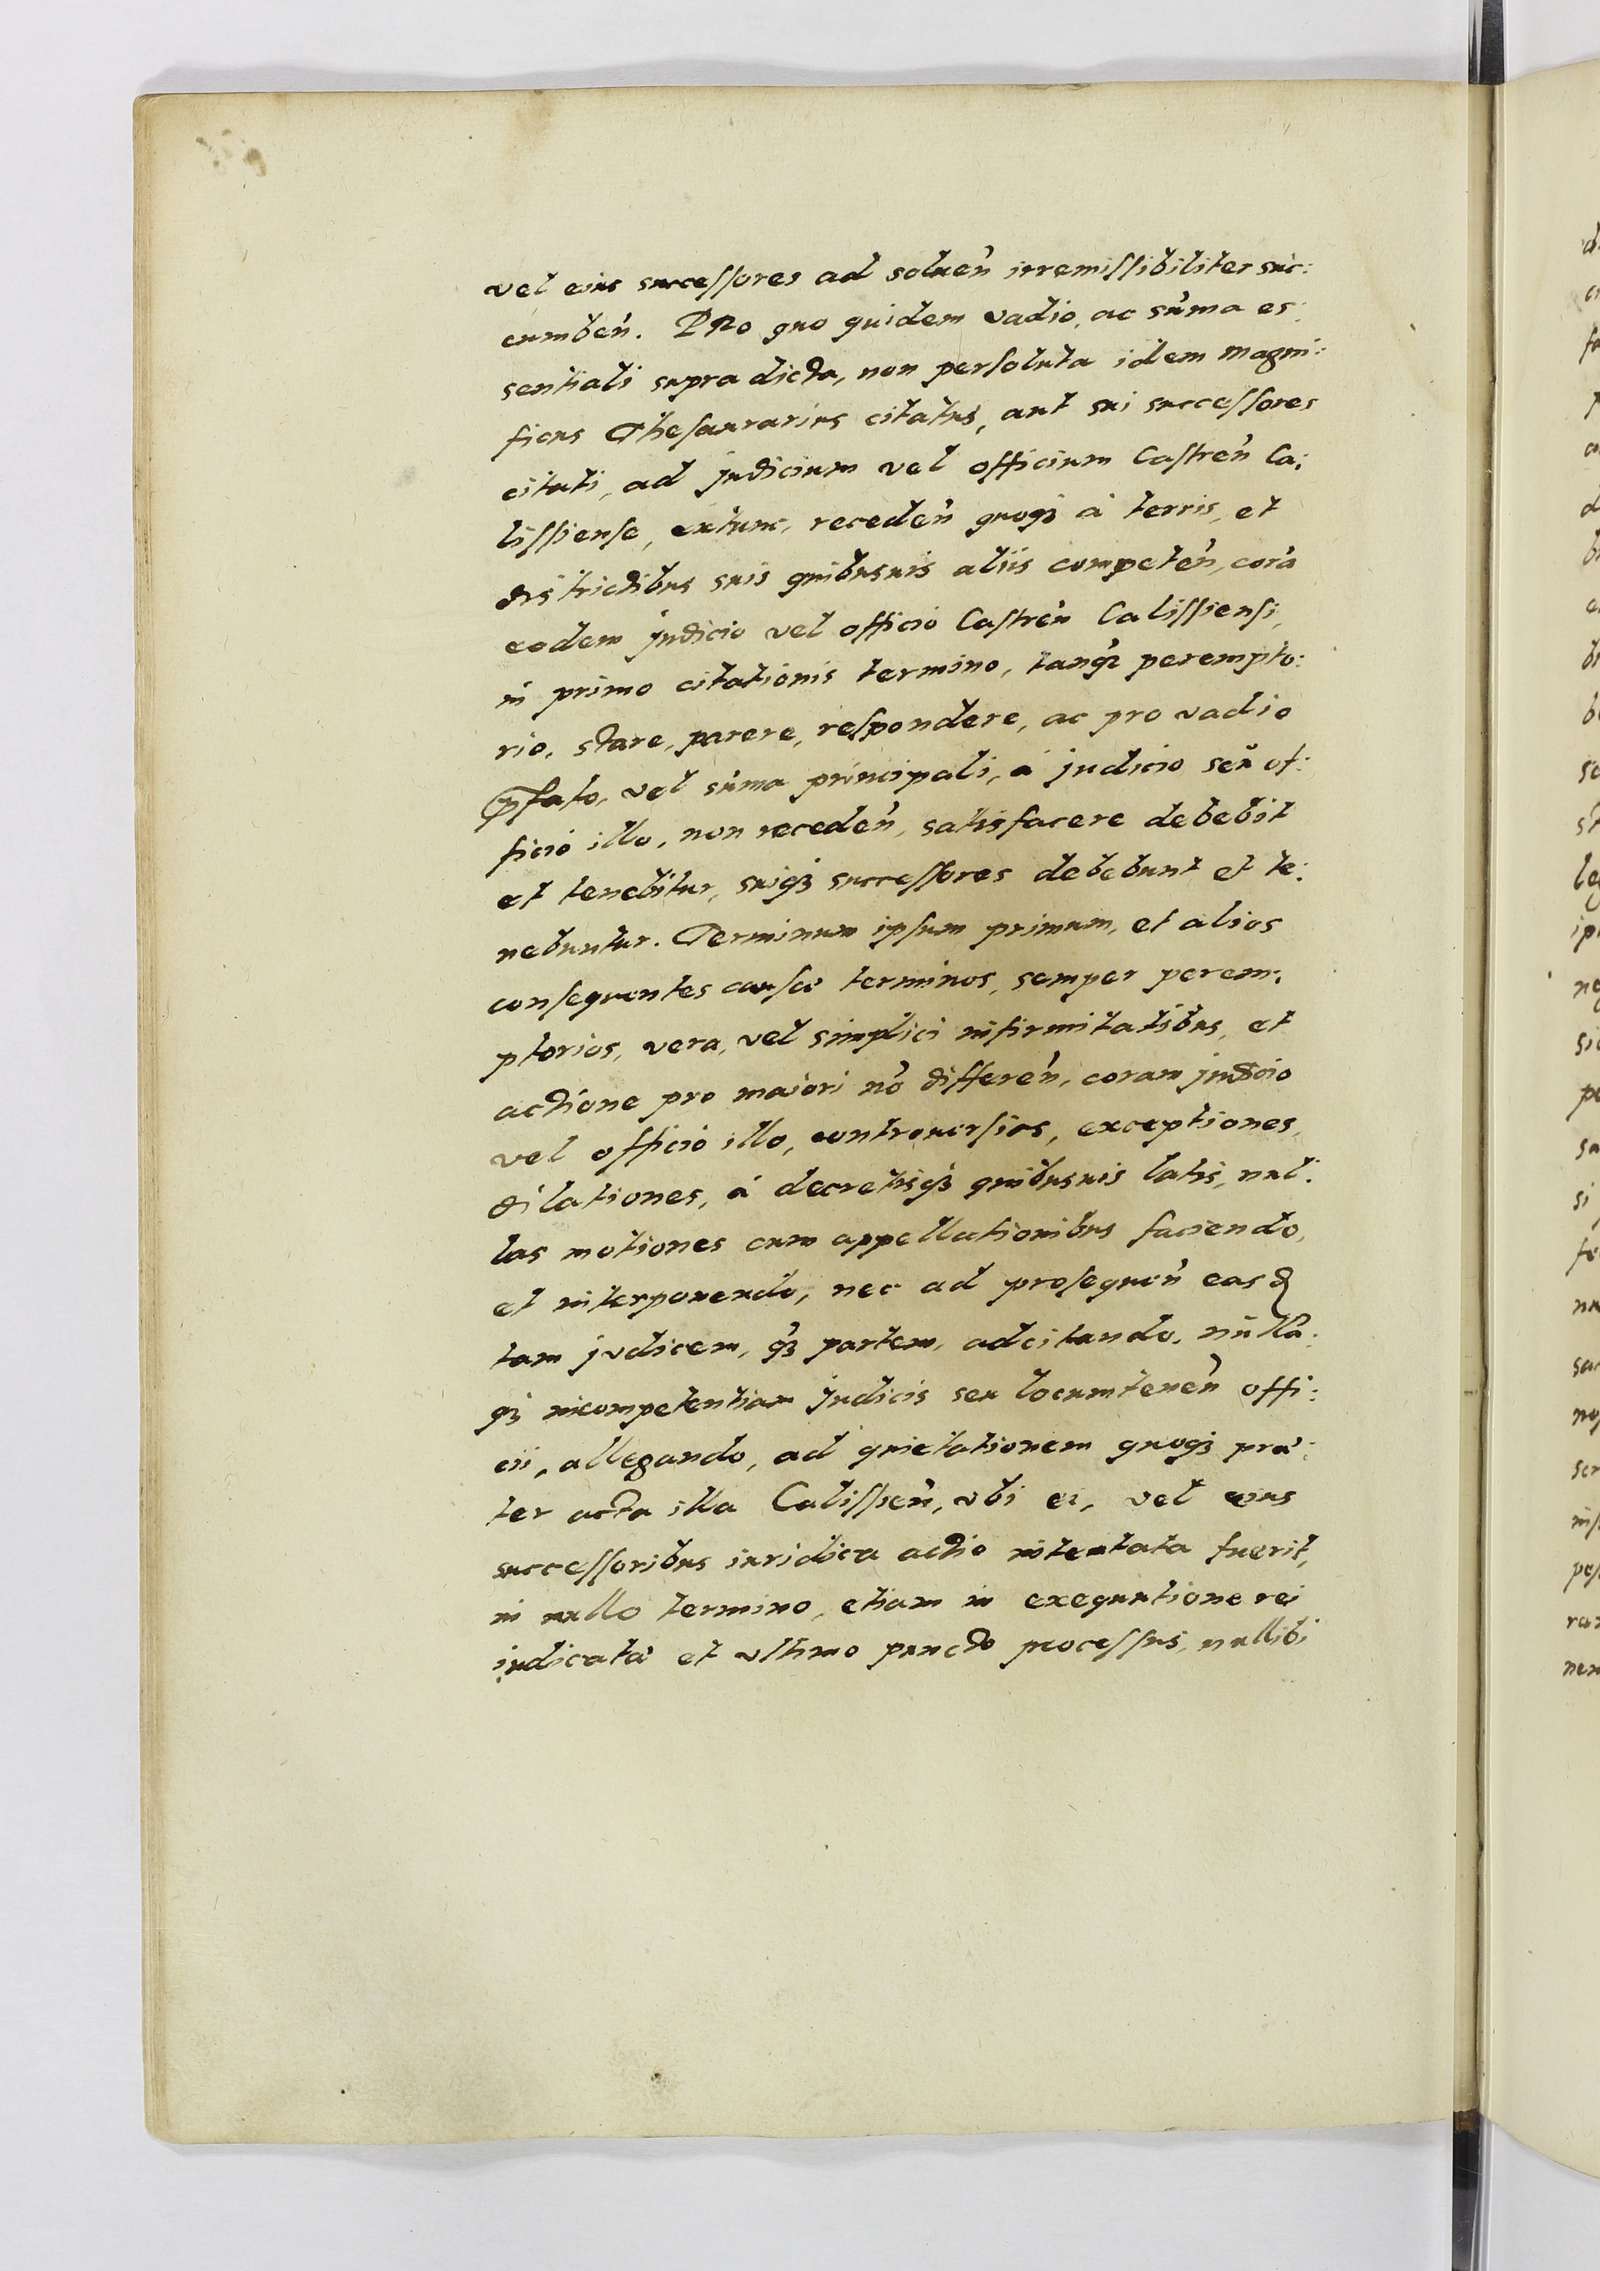 vel eius successores ad soluen̄ irremissibiliter suc:
cumben̄. PRo quo quidem vadio, ac sum̄a es:
sentiali supra dicta, non persoluta idem magni:
ficus Thesaurarius citatus, aut sui successores
citati, ad judicium vel officium Castren̄ Ca:
lissiense, extunc, receden̄ quoq₃ à terris, et
districtibus suis quibusuis aliis competen̄, corā
eodem judicio vel officio Castren̄ Calissiensi,
in primo citationis termino, tanq̄ perempto:
rio, stare, parere, respondere, ac pro vadio
p̄fato, vel sum̄a principali, à judicio seu of:
ficio illo, non receden̄, satisfacere debebit
et tenebitur, suiq₃ successores debebunt et te:
nebuntur. Terminum ipsum primum, et alios
consequentes causæ terminos, semper perem:
ptorios, vera, vel simplici infirmitatibus, et
actione pro maiori nō differen̄, coram judicio
vel officio illo, controuersias, exceptiones,
dilationes, à decretisq₃ quibusuis latis, nul:
las motiones cum appellationibus faciendo,
et interponendo, nec ad prosequen̄ easd
tam judicem, q₃ partem, adcitando, nullā:
q₃ incompetentiam judicis seu locumtenen̄ offi:
cii, allegando, ad quietationem quoq₃ præ:
ter acta illa Calissien̄, vbi ei, vel eius
successoribus iuridica actio intentata fuerit,
in nullo termino, etiam in exequutione rei
iudicatæ et vltimo puncto processus, nullibi